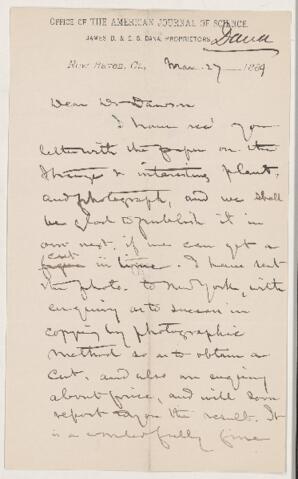 OFFICE OF THE AMERICAN JOURNAL OF SCIENCE.
JAMES D. & E. S. DANA, PROPRIETORS. Dana
New Haven, Ct., Mar. 27 1889
Dear Dr Dawson
I have rec'd your
letter with the paper on the
strange & interesting plant,
and photograph, and we shall
be glad to publish it in
our next, if we can get a
cut
in time. I have sent
the photo. to New York, with
enquiry as to success in
copying by photographic
method so as to obtain a
cut, and also an enquiry
about price, and will soon
report to you the result. It
is a wonderfully fine